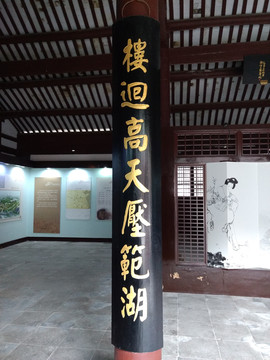 樓迴高天壓範湖